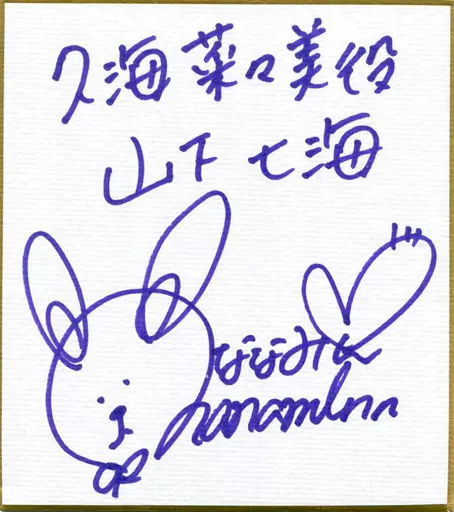 久海菜々美役
山下七海
ななみん
nanaminn